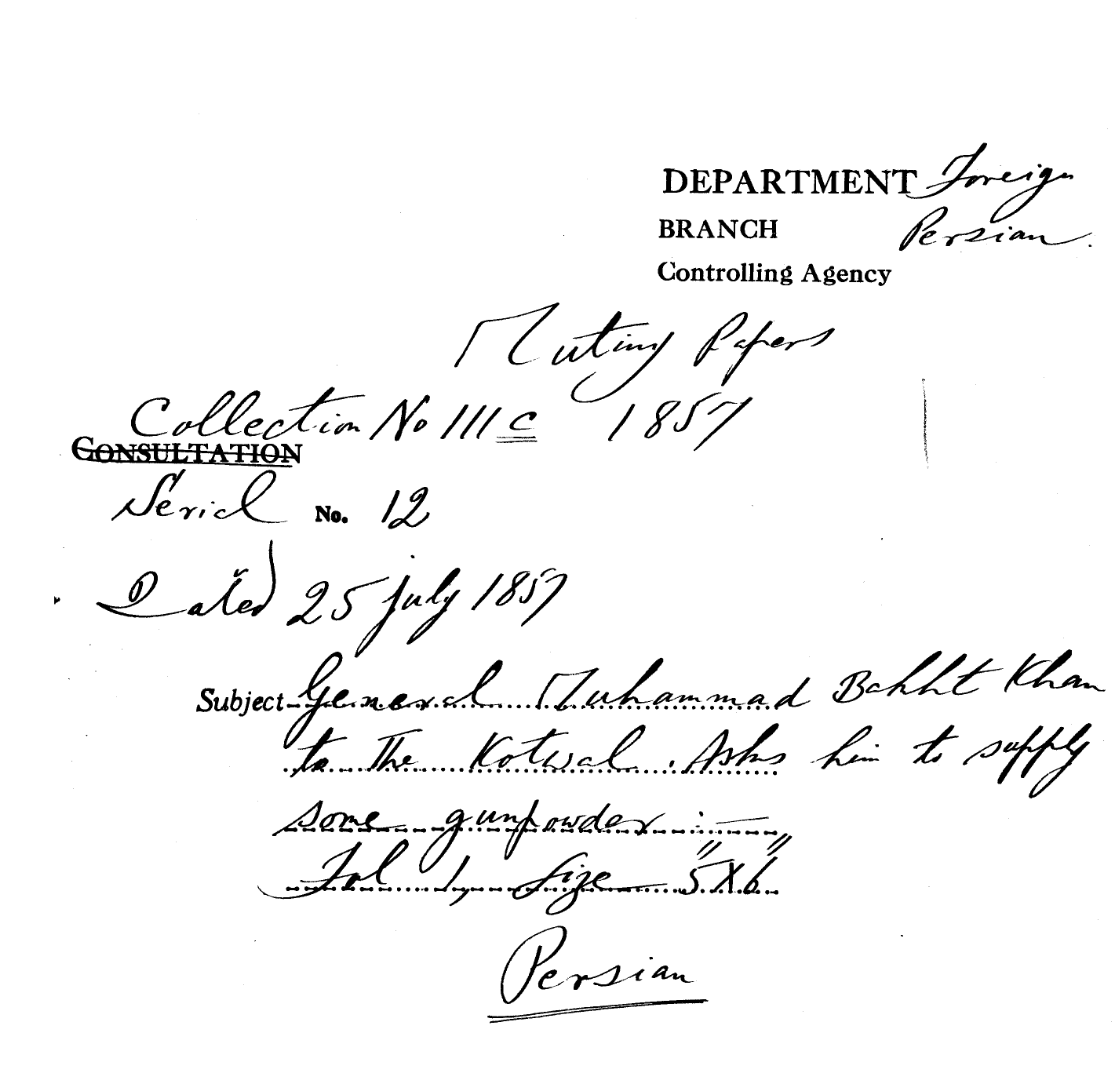 DEPARTMENT Foreign
BRANCH Persian.
Controlling Agency
Mutiny Papers
Collection No 111 C 1857
CONSULTATION
Serial No. 12
Dated 25 July 1857
Subject General Muhammad Bakht Khan
to The Kotwal. Asks him to supply
some gunpowder :—
Fol 1, Size 5"X6"
Persian